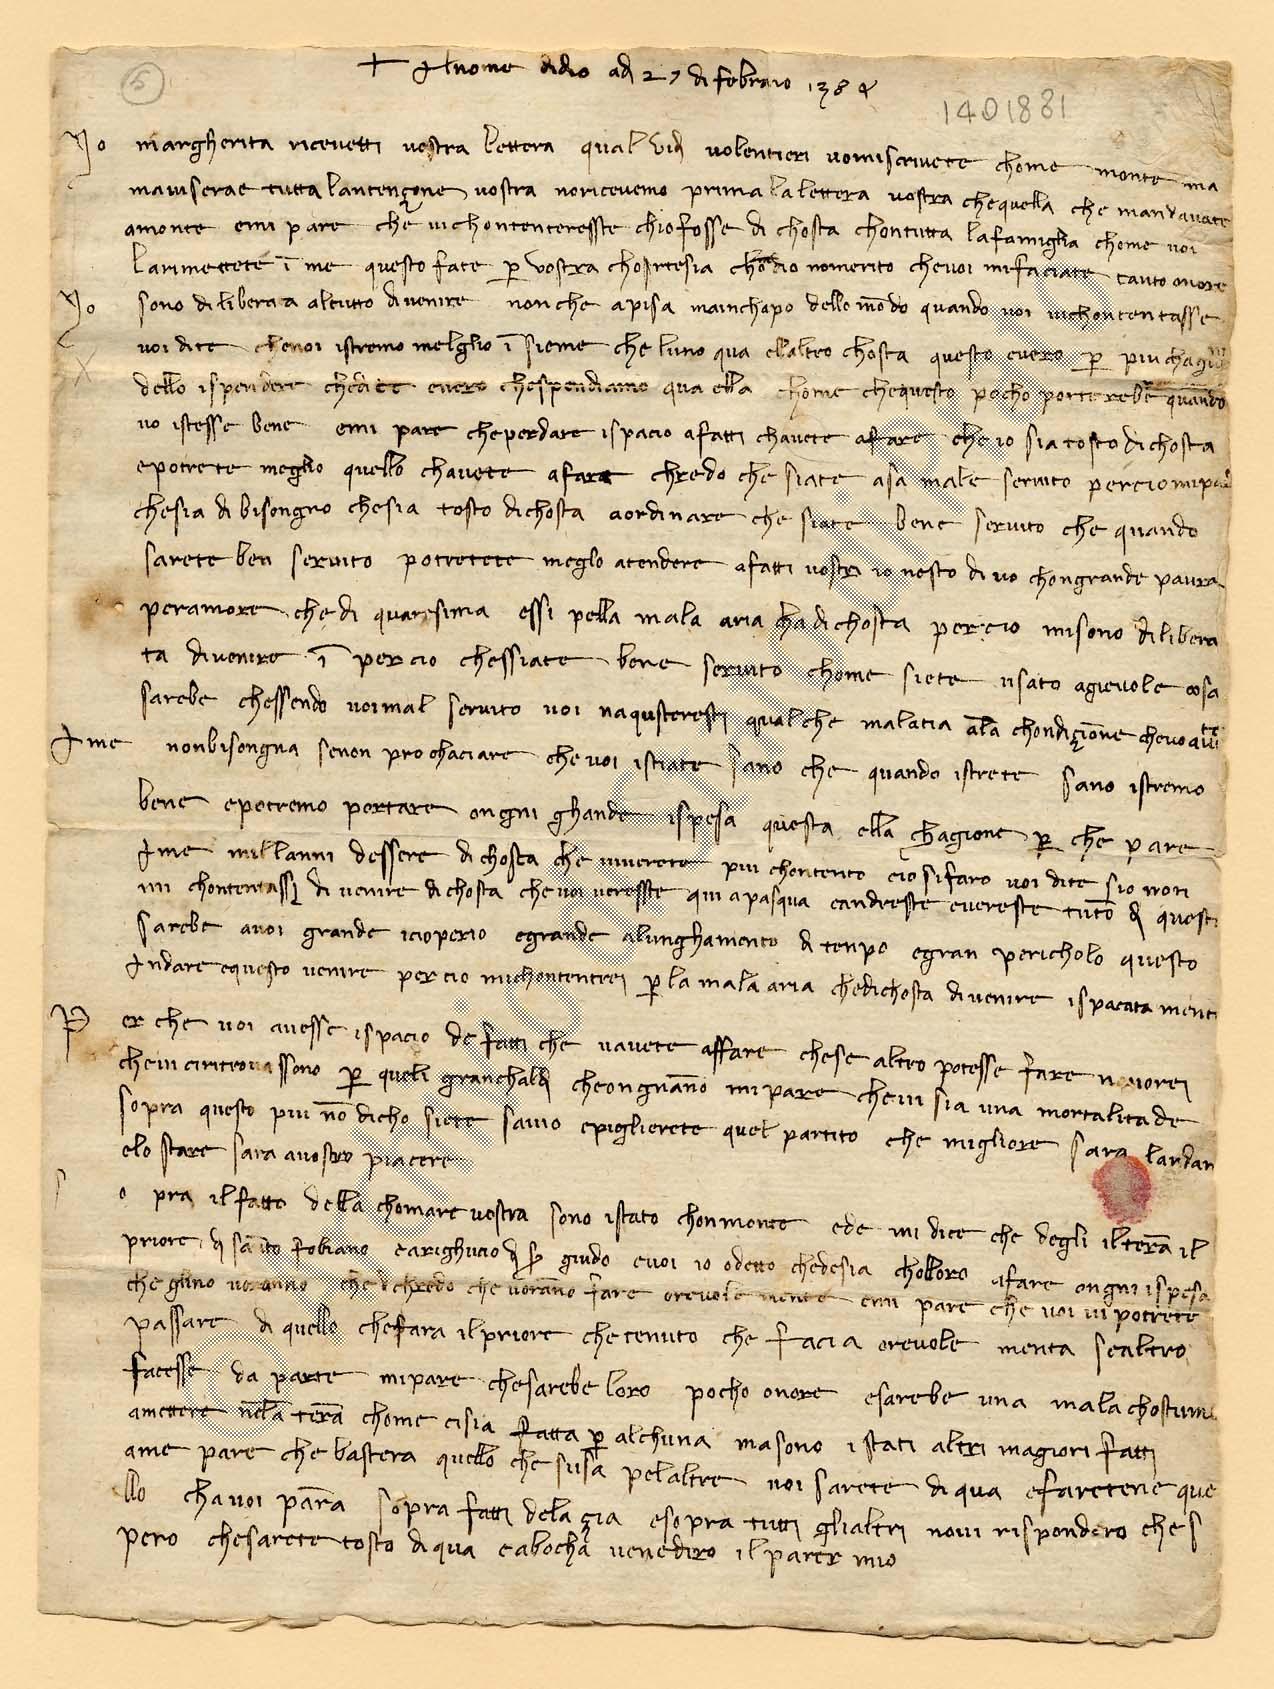 5
+ Al nome didio adj 27 di febraio 1384
1401881
Io margherita ricevetti vostra lettera qual vidj volentieri voi mi scrivete chome monte ma
mavisera e tutta lantençone vostra no ricevemo prima la lettera vostra che quella che mandavate
a monte e mi pare che vi chontenteresste chio fosse di chosta chon tutta la famiglia chome voi
larimettete ī me questo fate p vostra chortesia chedio no merito che voi mi faciate tanto onore
Io sono diliberaa altutto di venire non che a pisa ma in chapo dello mōdo quando voi vi chontentasse
voi dite che noi istremo melglio ī sieme che luno qua ellaltro chosta questo e vero p piu chagini
dello ispendere e vero che spendiamo qua ella chome che questo pocho porterebe quando
vo istesse bene e mi pare che per dare ispacio a fatti chavete a fare che io sia tosto di chosta
e potrete meglio quello chavete a fare chredo che siate asa male servito per cio mi pare
che sia di bisongno che sia tosto di chosta a ordinare che siate bene servito che quando
sarete ben servito potretete meglo atendere a fatti vostri io nesto di vo chon grande paura
per amore che di quaresima essi pella mala aria cha di chosta per cio mi sono dilibera
ta di venire ī per cio chessiate bene servito chome siete usato agievole cosa
sarebe chessendo voi mal servito voi naqusteresti qualche malatia a la chondizione chevo avete
A me non bisongna se non prochaciare che voi istiate sano che quando istrete sano istremo
bene e potremo portare ongni ghande ispesa questa ella chagione p che pare
A me millanni dessere di chosta che viverete piu chontento cio si faro voi dite sio non
mi chontentassj di venire di chosta che voi veresste qui a pasqua e andreste e vereste tuto dj questo
sarebe a voi grande icioperio e grande alunghamento di tenpo e gran pericholo questo
Andare e questo venire per cio mi chontentrei p la mala aria che di chosta di venire ispacata mente
Per che voi avesse ispacio de fatti che vavete affare che se altro potesse fare no vorei
che vi ci ritrovassono p queli gran chaldi che ongnano mi pare che vi sia una mortalitade
sopra questo piu nō dicho siete savio e piglierete quel partito che migliore sara landare
e lo stare sara a vostro piacere
Sopra il fatto della chomare vostra sono istato chon monte ed e mi dice che degli il terra il
priore dj santo fobiano e arighucio dj giudo e voi io o detto che desia cholloro a fare ongni ispesa
che glino voranno chredo che vorano fare orevole mente e mi pare che voi vi potrete
passare di quello che fara il priore che tenuto che facia orevole menta se altro
facesse da parte mi pare che sarebe loro pocho onore e sarebe una mala chostuma
a mettere nela tera chome ci sia fatta p alchuna ma sono istati altri magiori fatti
a me pare che bastera quello che susa pelaltre voi sarete di qua e faretene que
llo cha voi parra sopra fatti dela zia e sopra tutti glialtri no vi rispondero che s
pero che sarete tosto di qua e a bocha ve ne diro il parer mio